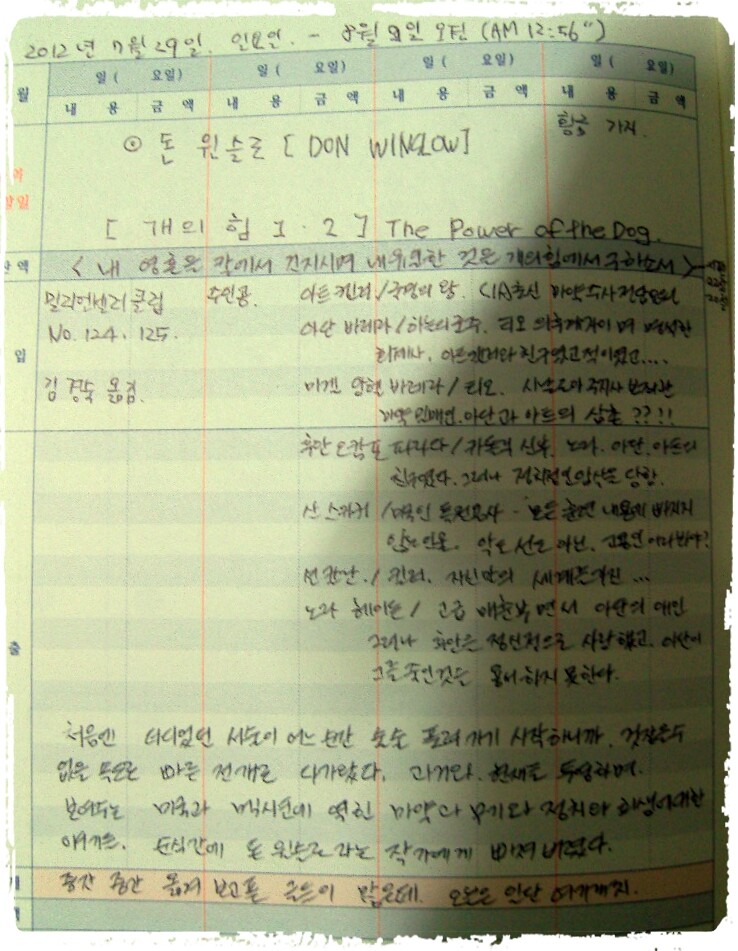 2012년 7월 29일. 일요일. - 8월 9일 오전 (AM 12:56")
월 일( 요일) 일( 요일) 일( 요일) 일( 요일)
내 용 금 액 내 용 금 액 내 용 금 액 내 용 금 액
황금 가지.
⊙ 돈 윈슬로 [DON WINSLOW]
[개의 힘 1·2] The Power of the Dog.
<내 영혼을 칼에서 건지시며 내 유일한 것을 개의 힘에서 구하소서>
밀리언셀러 클럽 주인공. 아트 켈러 / 국경의 왕. CIA 출신 마약수사
No. 124. 125. 아단 바레라 / 하늘의 군주. 티오의 이며 명석한
회계사. 아트켈러와 친구였고 적이였고....
김경숙 옮김. 미겔 앙헬 바레라 / 티오. 시날로아 주지사
마약 아단과 아트의 삼촌 ??!!
후안 오캄포 파라다 / 카톨릭 신부. 노라. 아단. 아트의
친구였다. 그러나 정치적인 암살을 당함.
출 산 스카키 / 미국인 - 모든 내용에 빠지지
않는 인물. 악도 선도 아닌.
션 칼란. / 킬러. 자신만의 세계를 가진 ...
노라 헤이든 / 고급 매춘부 면서 아단의 애인
그러나 후안을 정신적으로 사랑했고. 아단이
그를 죽인것을 용서하지 못한다.
처음엔 더디었던 서술이 어느 순간 술술 풀려 가기 시작하니까. 걷잡을수
없을 정도로 빠른 전개로 나가았다. 과거와. 현재를 하며.
보여주는 미국과 멕시코에 얽힌 마약과 무기와 정치와 희생에 대한
이야기는. 순식간에 돈 윈슬로 라는 작가에게 빠져 버렸다.
중간 중간 옮겨 보고픈 글들이 많은데. 오늘은 일단 여기까지.